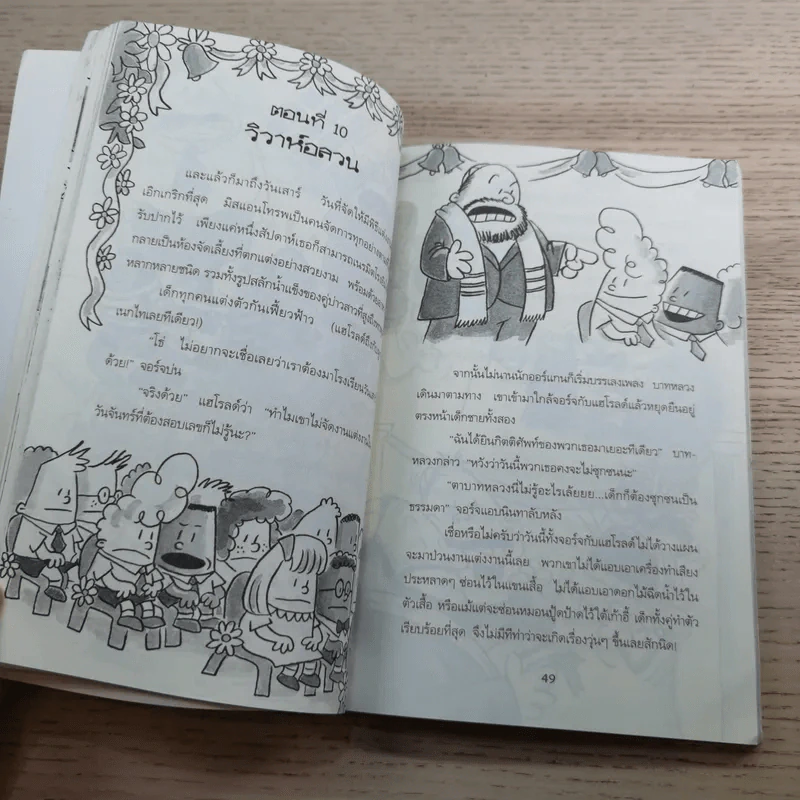 ตอนที่ 10
วิวาห์อลวน
และแล้วก็มาถึงวันเสาร์ วันที่จัดให้มี
เอิกเกริกที่สุด มิสแอนโทรพเป็นคนจัดการทุกอย่าง
รับปากไว้ เพียงแค่หนึ่งสัปดาห์เธอก็สามารถเนรมิต
กลายเป็นห้องจัดเลี้ยงที่ตกแต่งอย่างสวยงาม พร้อมด้วย
หลากหลายชนิด รวมทั้งรูปสลักน้ำแข็งของคู่บ่าวสาว
เด็กทุกคนแต่งตัวกันเฟี้ยวฟ้าว (แฮโรลด์
เนกไทเลยทีเดียว!)
"โซ่ ไม่อยากจะเชื่อเลยว่าเราต้องมาโรงเรียน
ด้วย!" จอร์จบ่น
"จริงด้วย" แฮโรลด์ว่า "ทำไมเขาไม่จัดงานแต่งงาน
วันจันทร์ที่ต้องสอบเลขก็ไม่รู้นะ?"
จากนั้นไม่นานนักออร์แกนก็เริ่มบรรเลงเพลง บาทหลวง
เดินมาตามทาง เขาเข้ามาใกล้จอร์จกับแฮโรลด์แล้วหยุดยืนอยู่
ตรงหน้าเด็กชายทั้งสอง
"ฉันได้ยินกิตติศัพท์ของพวกเธอมาเยอะทีเดียว" บาท-
หลวงกล่าว "หวังว่าวันนี้พวกเธอคงจะไม่ซุกซนนะ"
"ตาบาทหลวงนี่ไม่รู้อะไรเล้ยยย...เด็กก็ต้องซุกซนเป็น
ธรรมดา" จอร์จแอบนินทาลับหลัง
เชื่อหรือไม่ครับว่าวันนี้ทั้งจอร์จกับแฮโรลด์ไม่ได้วางแผน
จะมาป่วนงานแต่งงานนี้เลย พวกเขาไม่ได้แอบเอาเครื่องทำเสียง
ประหลาดๆ ซ่อนไว้ในแขนเสื้อ ไม่ได้แอบเอาดอกไม้ฉีดน้ำไว้ใน
ตัวเสื้อ หรือแม้แต่จะซ่อนหมอนปู้ดป้าดไว้ใต้เก้าอี้ เด็กทั้งคู่ทำตัว
เรียบร้อยที่สุด จึงไม่มีทีท่าว่าจะเกิดเรื่องวุ่นๆ ขึ้นเลยสักนิด!
49